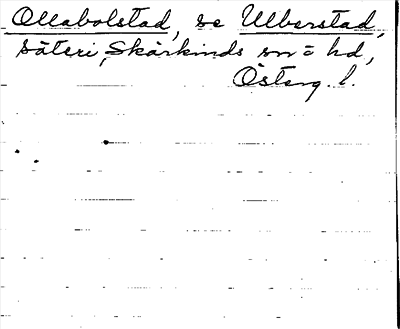 Ollabolstad, se Ulberstad,
säteri, Skärkinds sn o hd,
Österg. l.